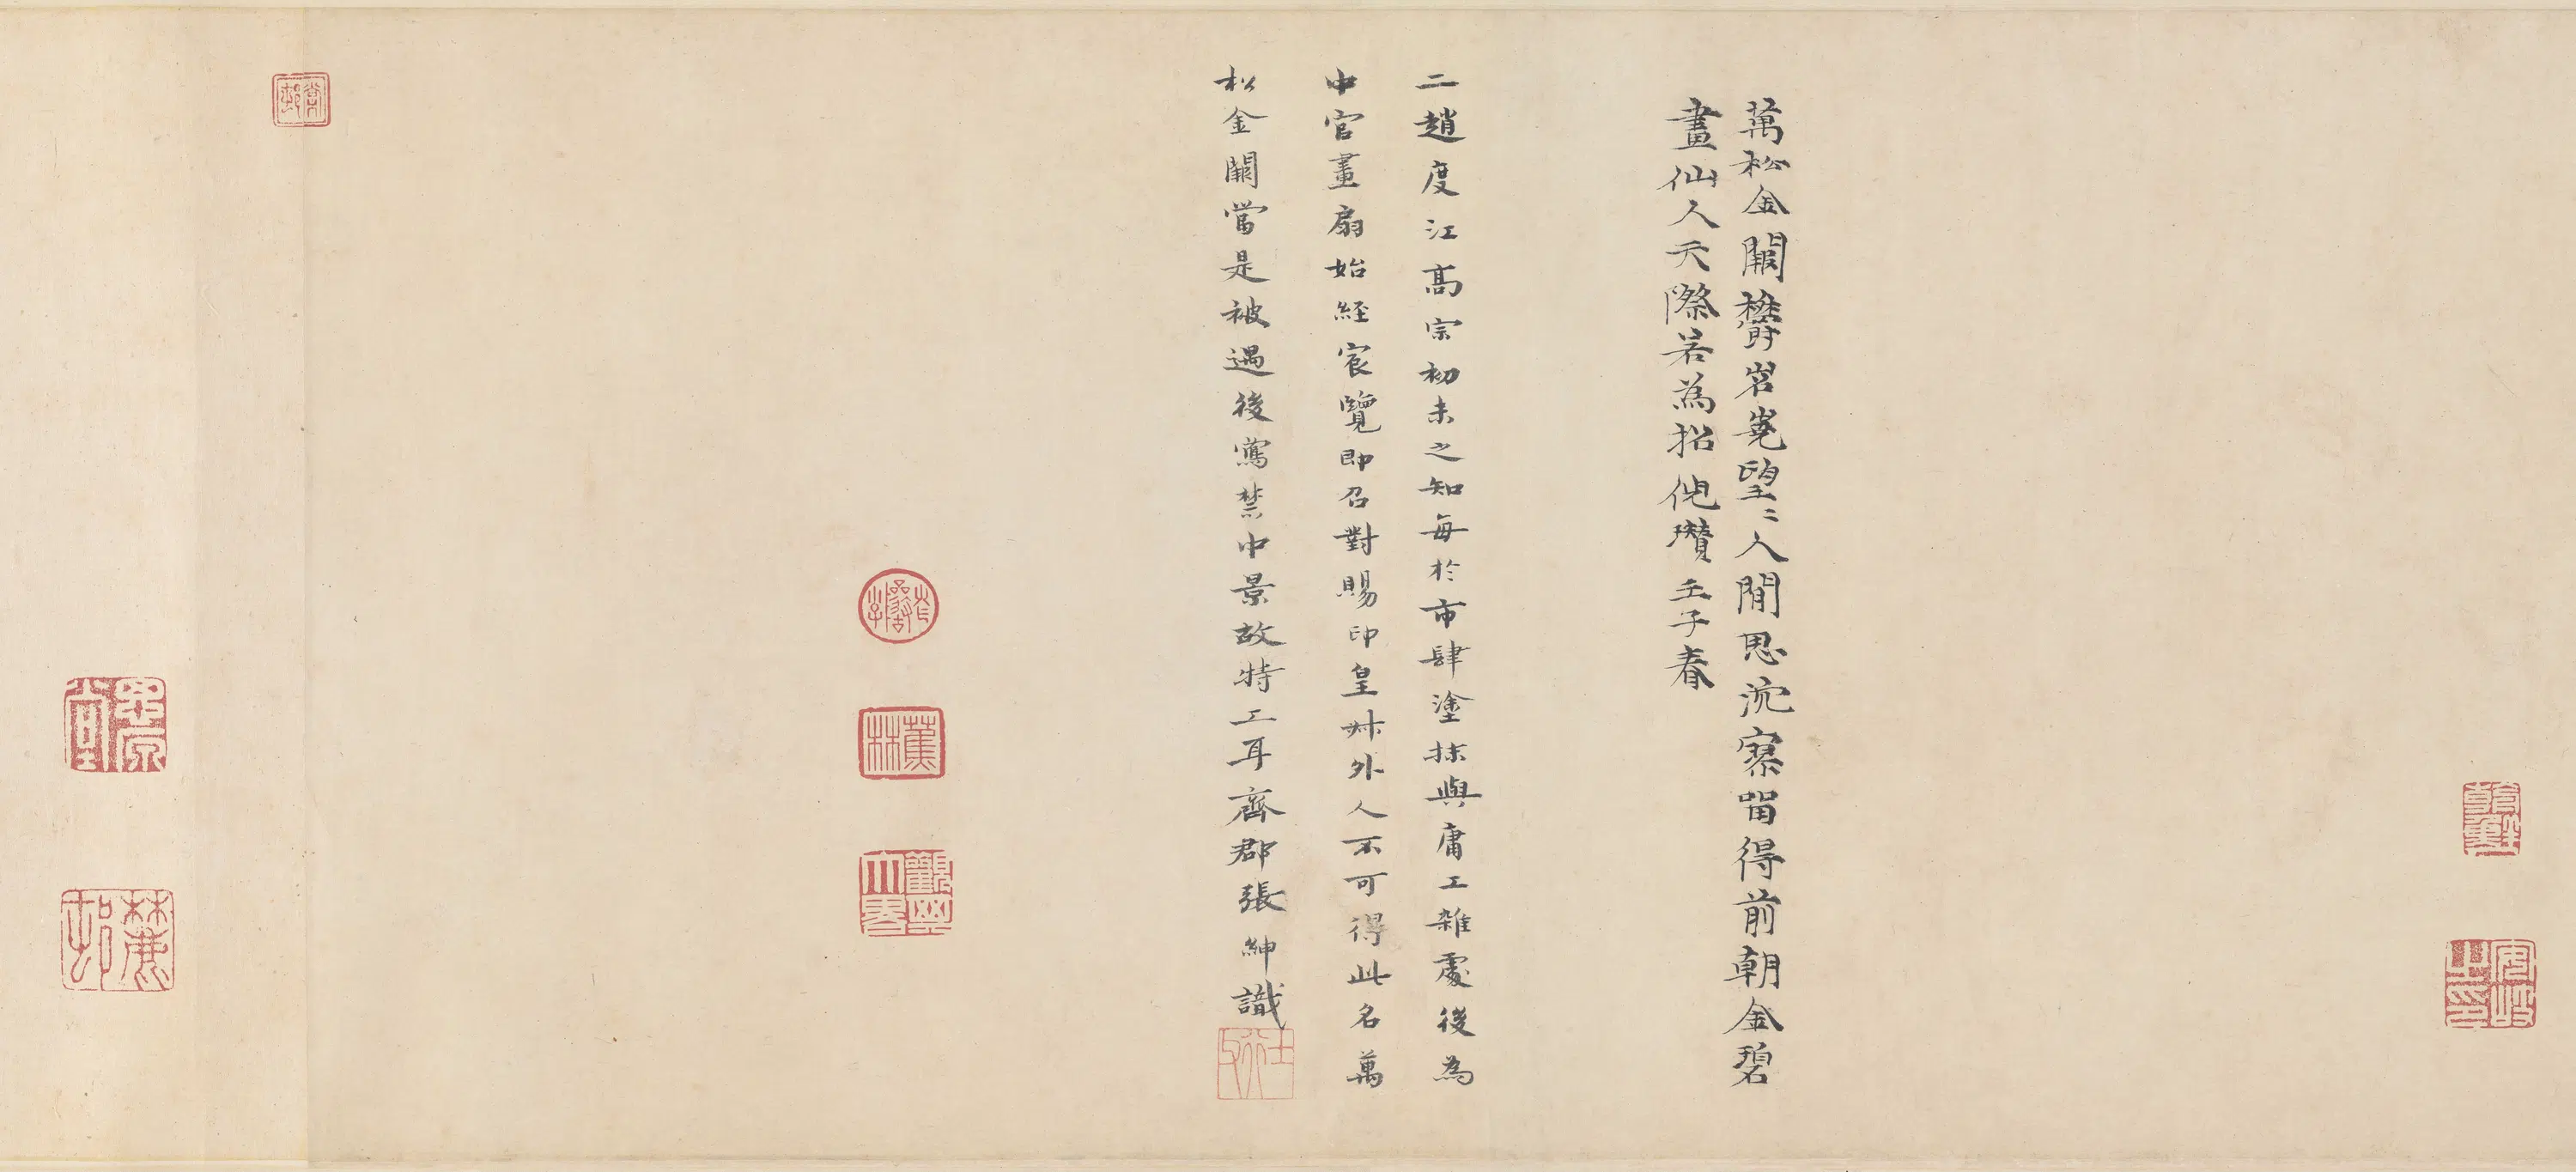 萬松金闕欝岧嶤望〻人間思泬寥留得前朝金碧
畫仙人天際若為招佗瓚壬子春
二趙度江高宗初未之知每於市肆塗抹與庸工雜處後為
中官畫扇始經宸覽即召對賜印皇叔外人不可得此名萬
松金闕當是被遇後寫禁中景故特工耳齊郡張紳識
蕉林
觀其大略
安岐之印